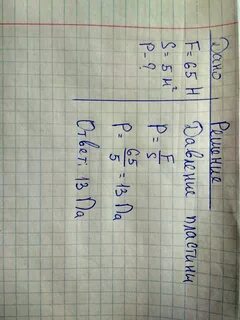 Дано
F = 65 Н
S = 5 м²
P - ?
Решение
Давление пластины
P = F/S
P = 65/5 = 13 Па
Ответ: 13 Па